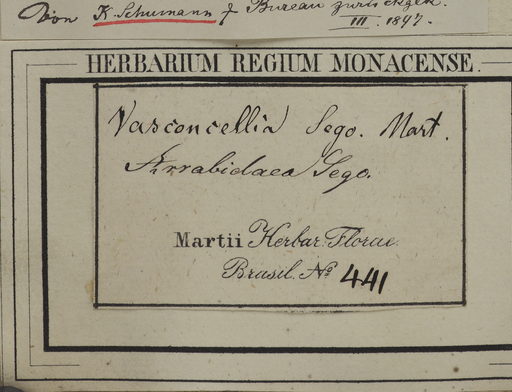 Von K. Schumann f. Bureau zurückgek.
III. 1897.
HERBARIUM REGIUM MONACENSE.
Vasconcellia Sego. Mart.
Arrabidaea Sego.
Martii Herbar. Florae
Brasil. No 441